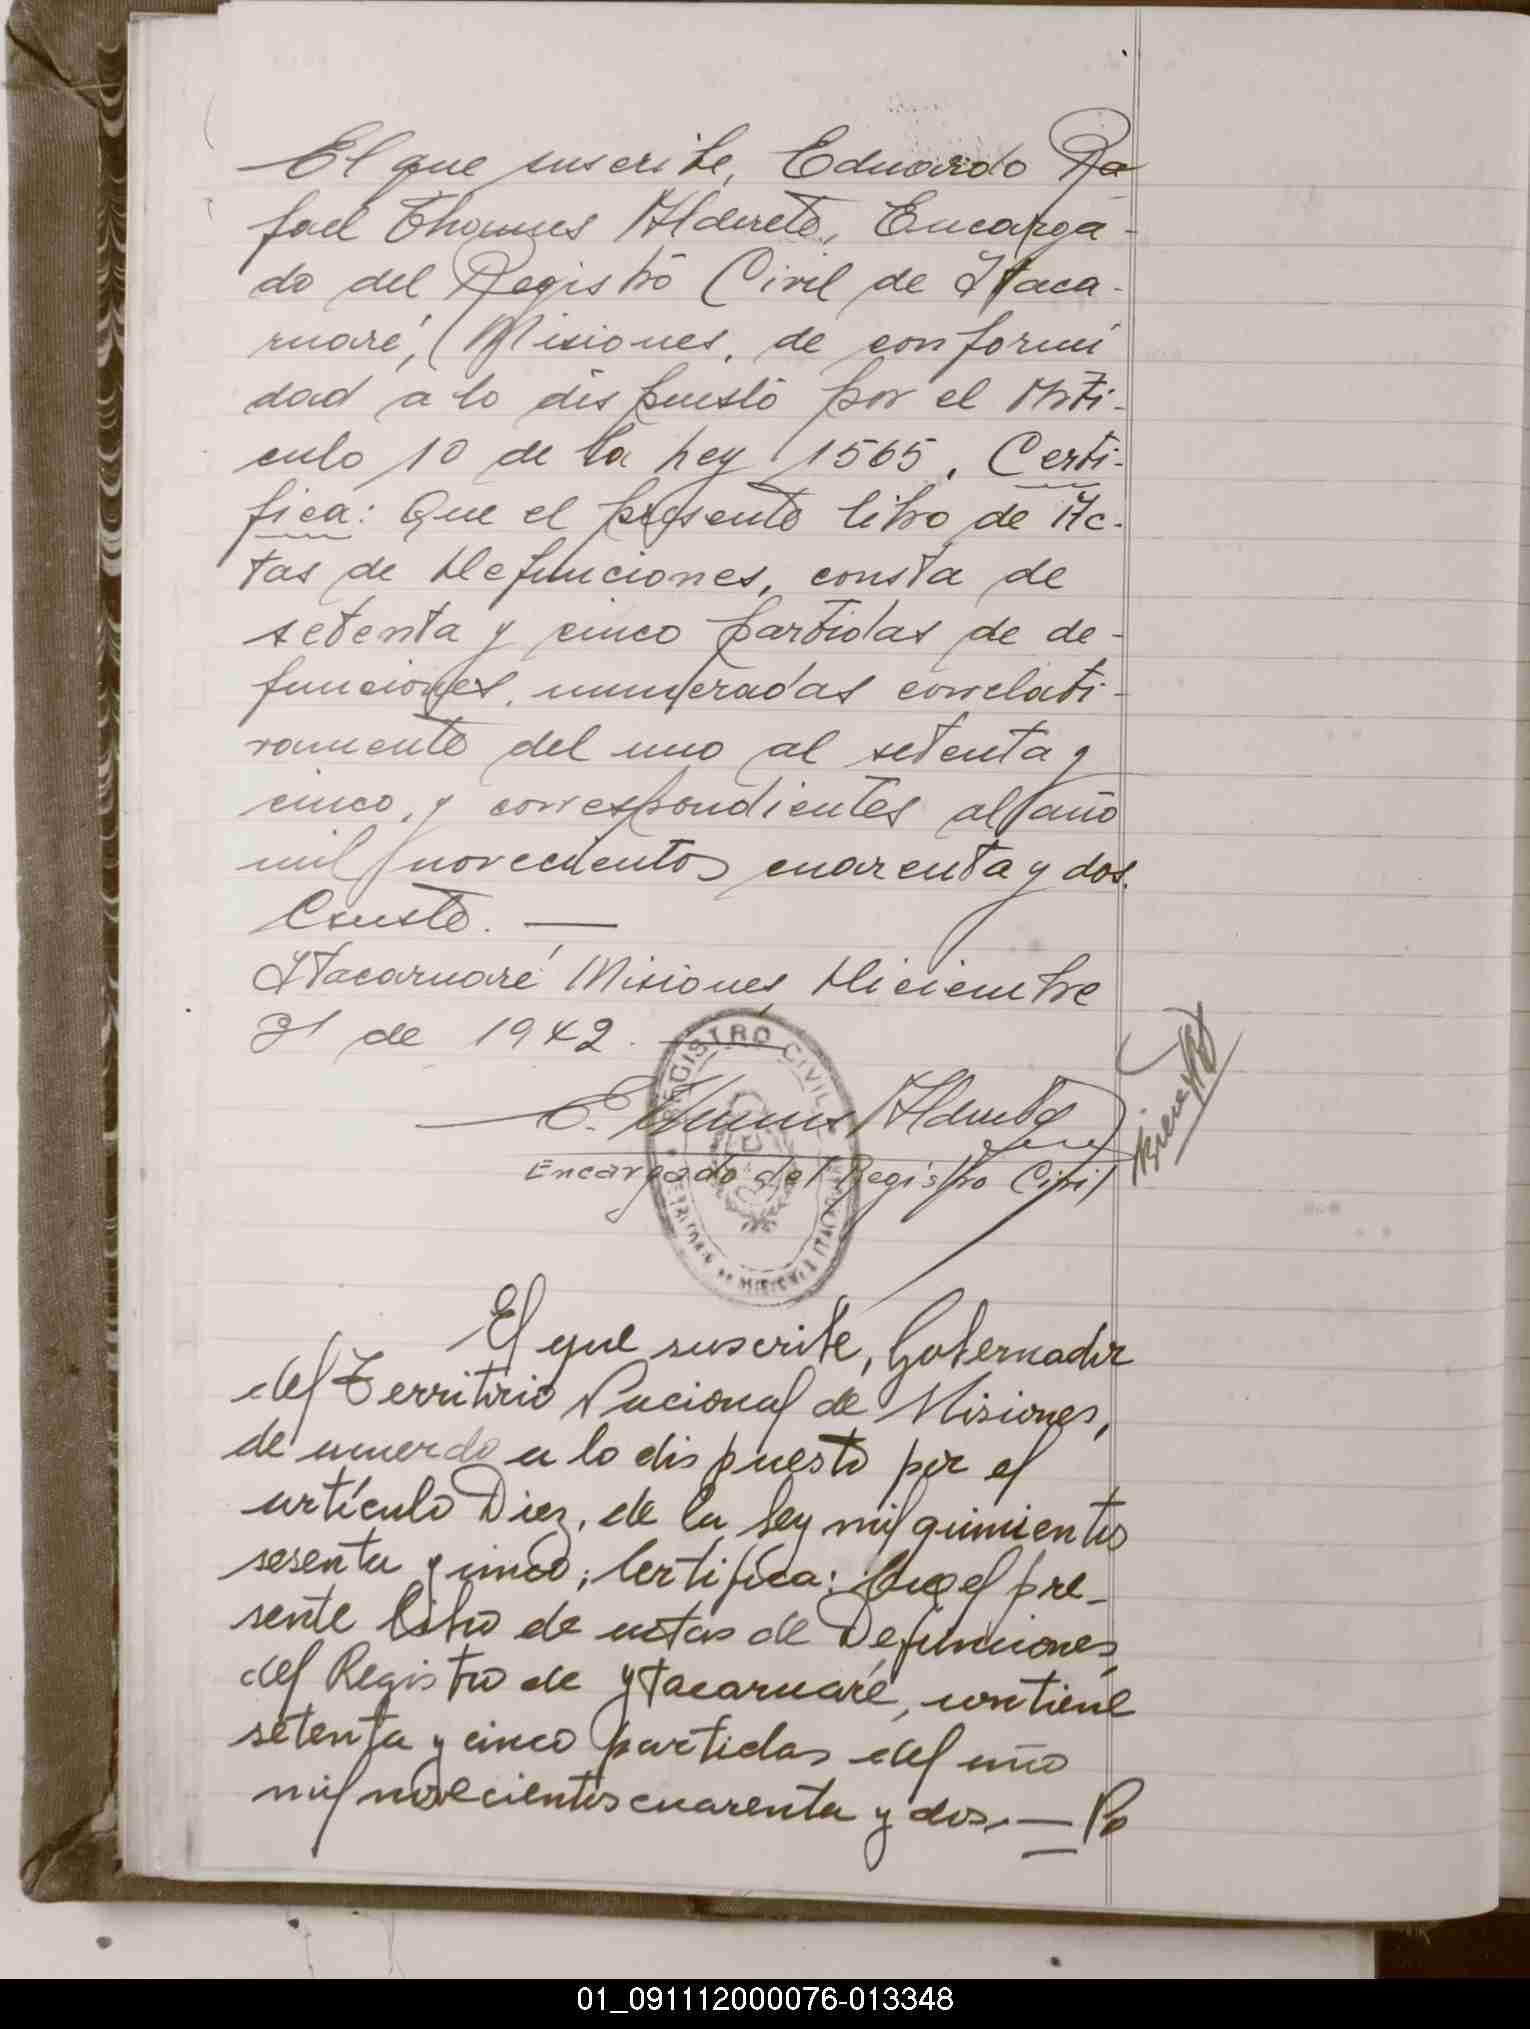 El que suscribe, Eduardo Ra
fael Thames Alderete, Encarga-
do del Registro Civil de Itaca-
ruaré, Misiones, de conformi
dad a lo dispuesto por el Artí-
culo 10 de la Ley 1565, Certi-
fica: Que el presente libro de Ac-
tas de Defunciones, consta de
setenta y cinco partidas de de-
funciones, numeradas correlati-
vamente del uno al setenta y
cinco, y correspondientes al año
mil novecientos cuarenta y dos.
Conste. —
Itacaruaré Misiones Diciembre
31 de 1942. —
REGISTRO CIVIL
E. Thames Alderete
Encargado del Registro Civil
El que suscribe, Gobernador
del Territorio Nacional de Misiones,
de acuerdo a lo dispuesto por el
artículo Diez, de la Ley mil quinientos
sesenta y cinco; Certifica: Que el pre-
sente libro de actas de Defunciones,
del Registro de Ytacaruaré, contiene
setenta y cinco partidas del año
mil novecientos cuarenta y dos. — Po
01_091112000076-013348